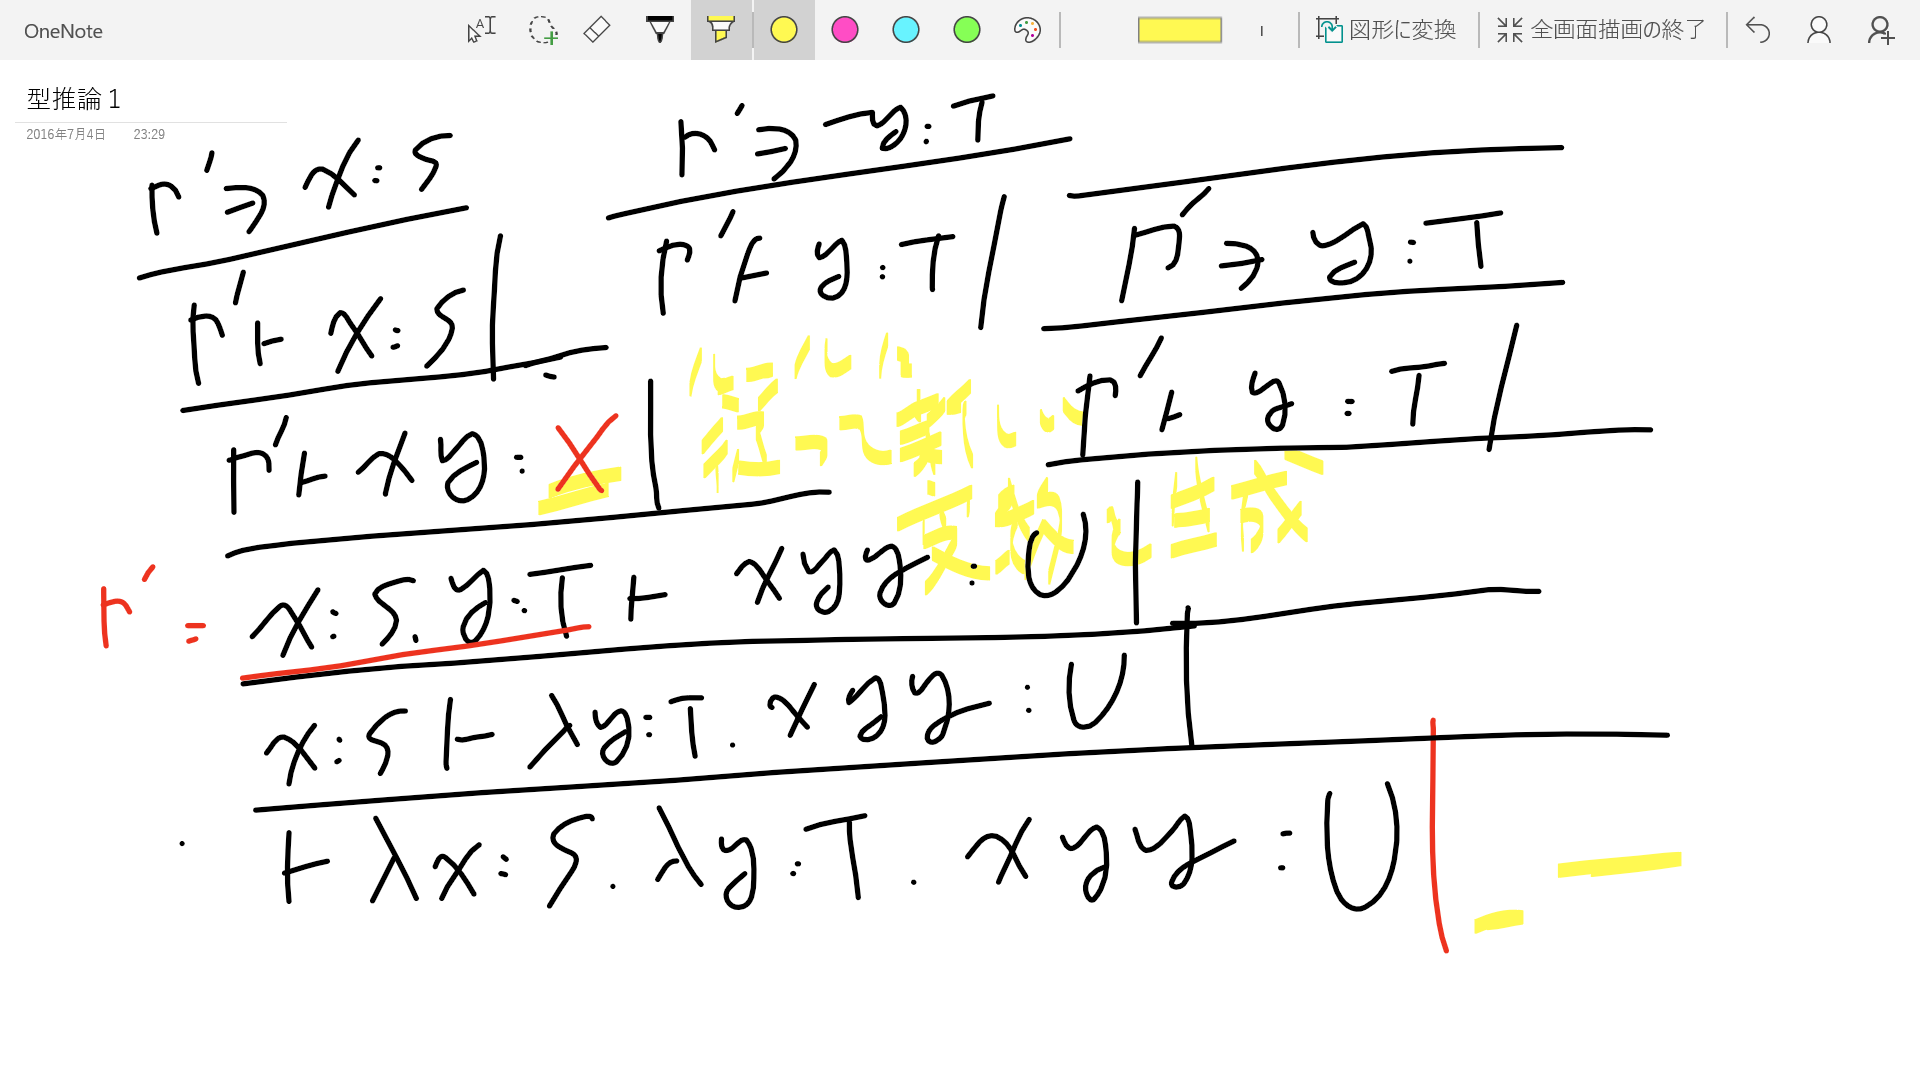 OneNote
図形に変換
全画面描画の終了
型推論 1
2016年7月4日 23:29
Γ'∋ x:S
Γ'∋ y:T
Γ'⊢ x:S |
Γ'⊢ y:T |
Γ'∋ y:T
Γ'⊢ xy: X |
Γ'⊢ y:T |
新しい
変数を生成
Γ' = x:S, y:T ⊢ xyy:U |
x:S ⊢ λy:T. xyy:U |
⊢ λx:S. λy:T. xyy:U |